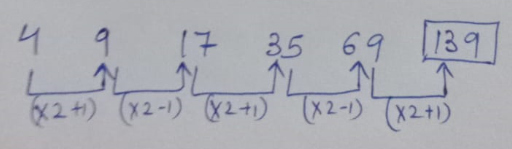 4 9 17 35 69 139
(×2+1) (×2-1) (×2+1) (×2-1) (×2+1)